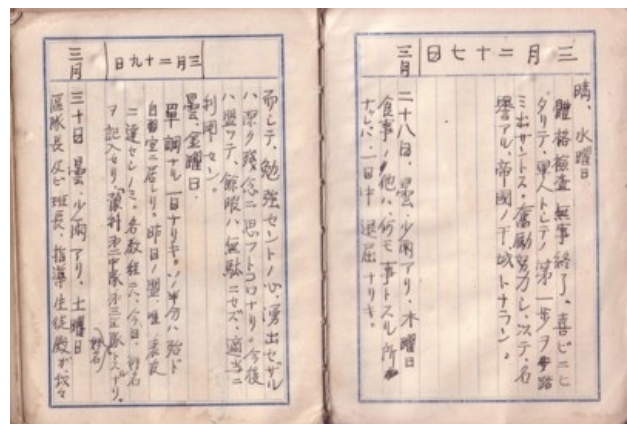 三月二十七日
晴、水曜日
體格檢査無事終了、喜ビニヒ
タリテ、軍人トシテノ第一歩ヲ踏
ミ出サントス。奮勵努力シ、以テ、名
譽アル、帝國ノ干城トナラン。
三月
二十八日、曇、少雨アリ、木曜日
食事ノ他ハ、何モ事トスル所
ナレバ、一日中退屈ナリキ。
而シテ、勉強セントノ心、湧出セザル
ハ深ク殘念ニ思フトコロナリ。今後
ハ盟ッテ、餘暇ハ無駄ニセズ、適當ニ
利用セン。
三月二十九日
曇、金曜日
單調ナル一日ナリキ。ソノ半分ハ殆ド
自習室ニ居レリ。昨日ノ盟、唯、
ニ達セシノミ。各教程ニハ、今日、姓名
ヲ記入セリ。「豫科第二中隊第三區隊
姓名
三月
三十日、曇、少雨アリ、土曜日
區隊長及ビ班長、指導生徒殿ガ